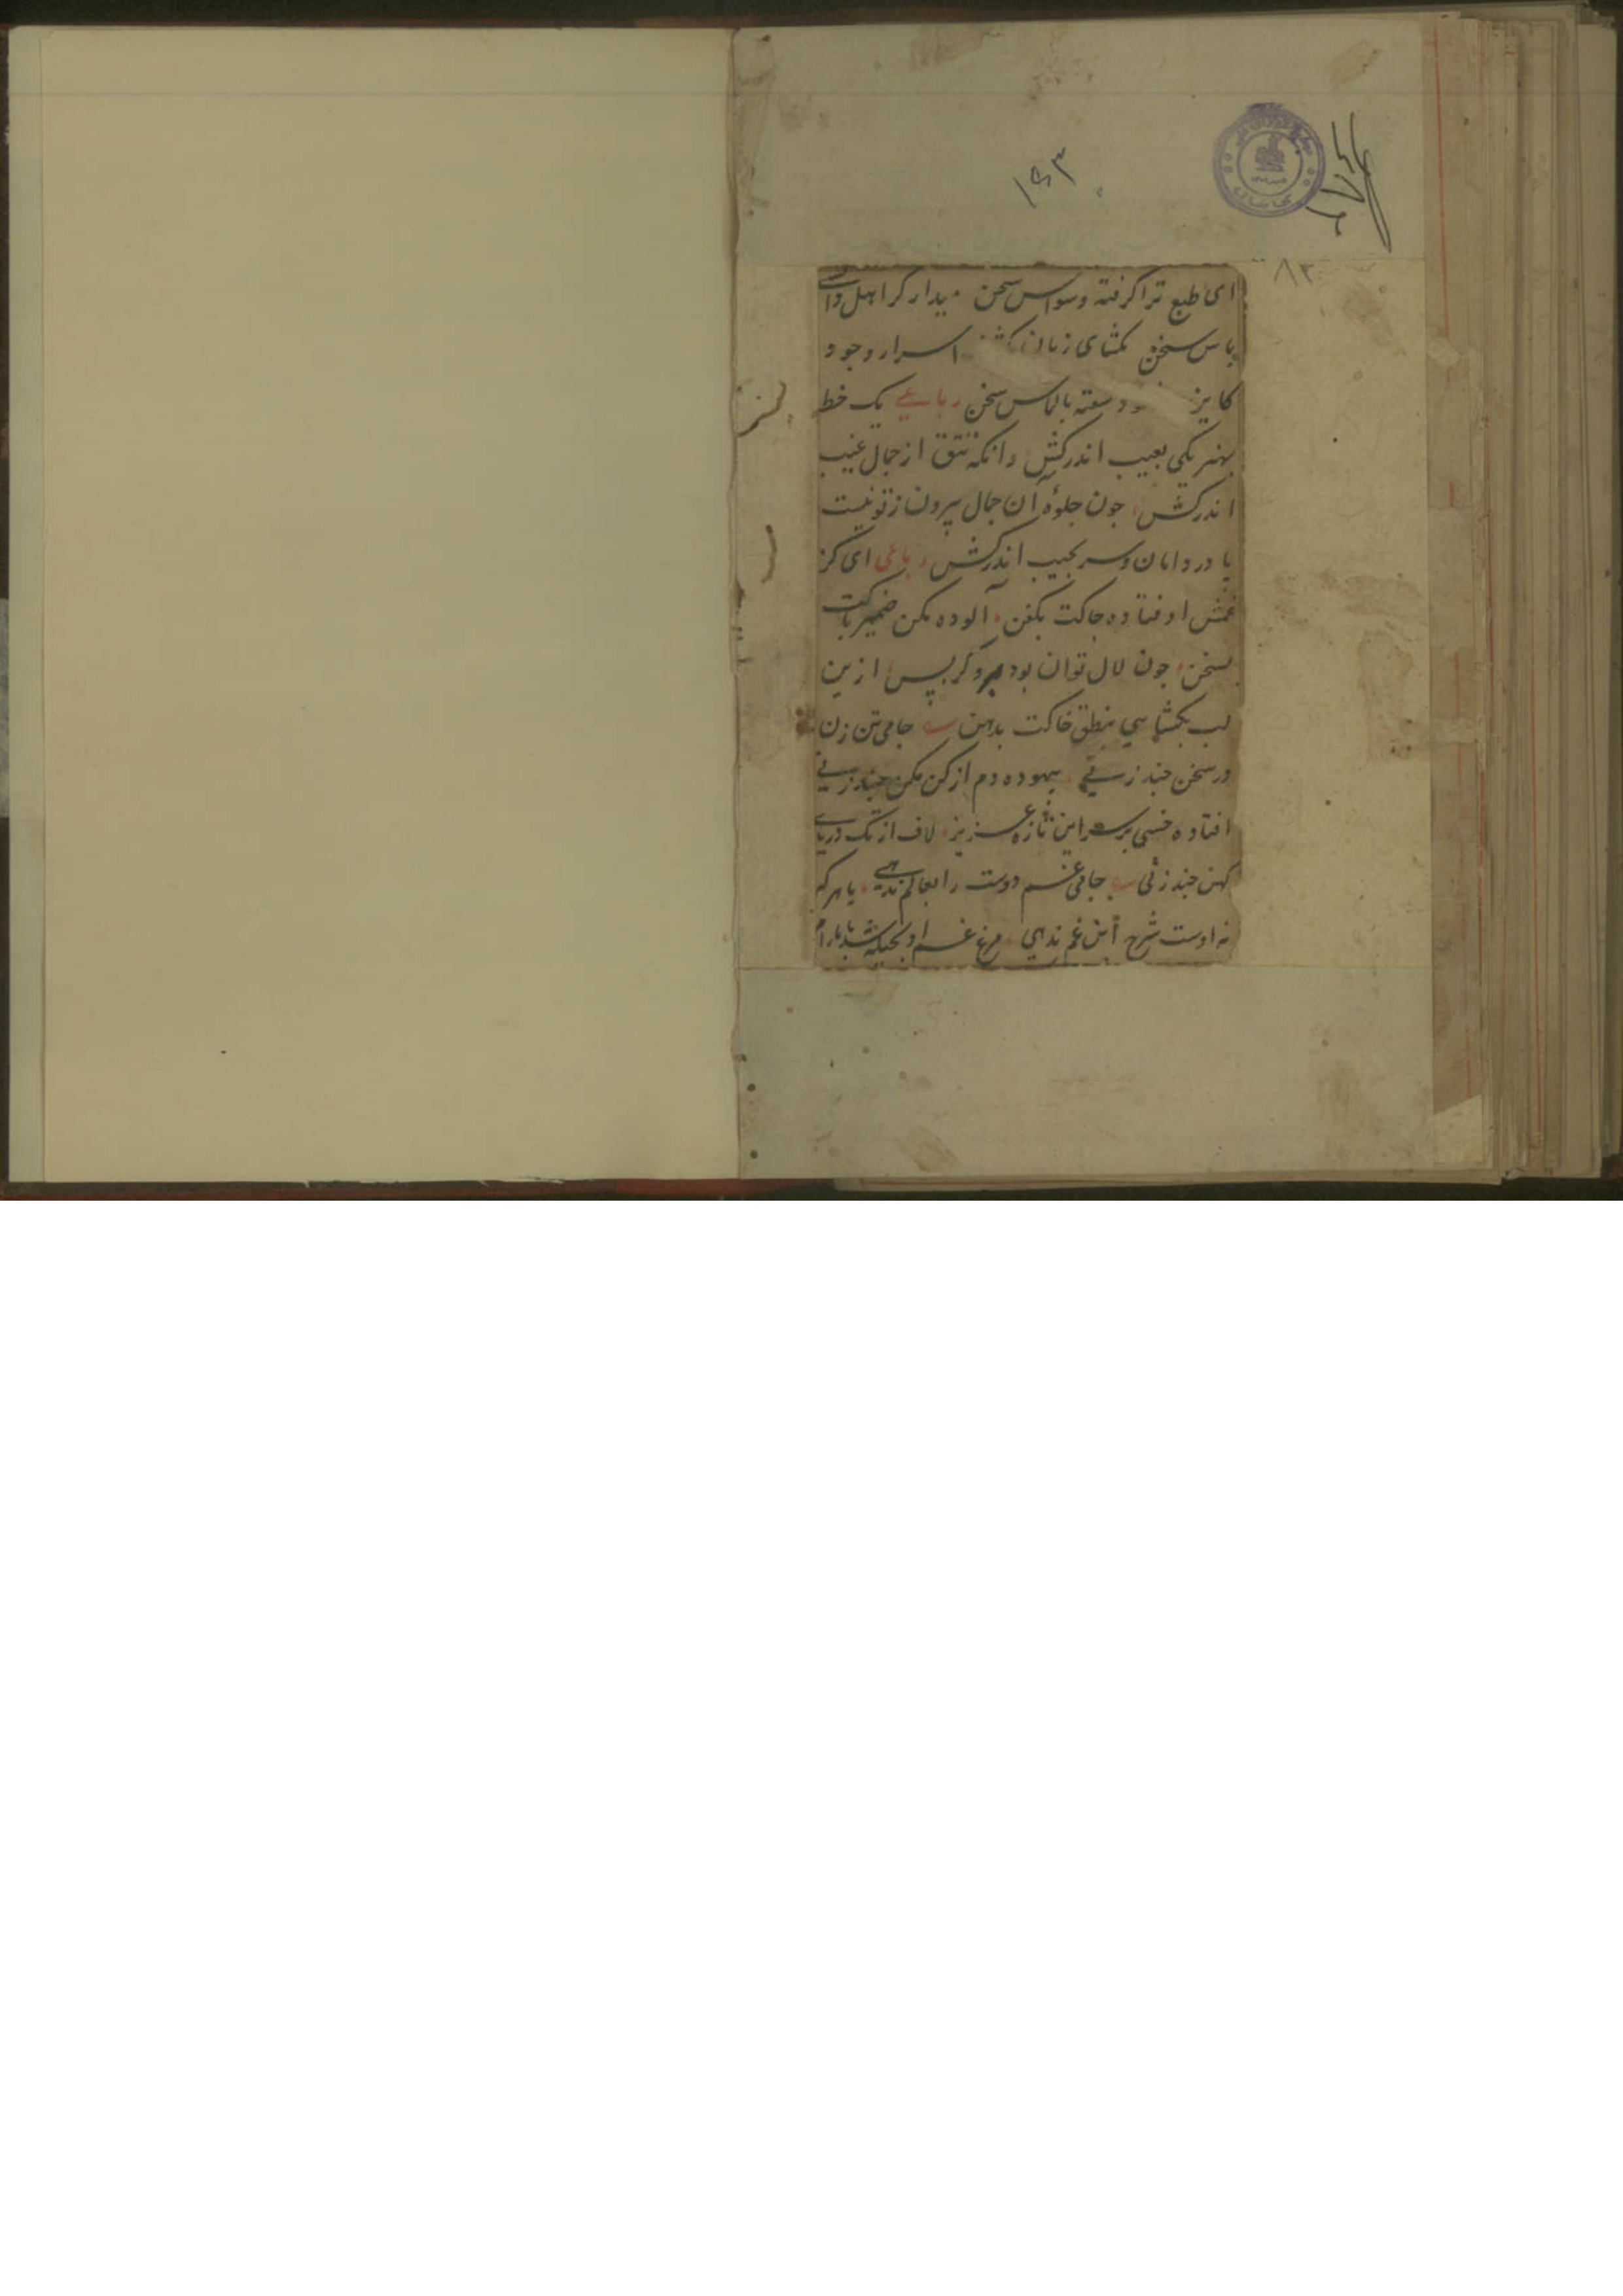 ۱۵۳
۸۳
ای طبع ترا گرفته وسواس سخن بیدار کر اهل دلی
پاس سخن مکشای زبان اسرار وجود
کاین سفته بالماس سخن رباعی یک خط
بهنر یکی بعیب اندرکش وانکه تتق از جمال غیب
اندرکش جون جلوهٔ آن جمال بیرون ز تو نیست
پا در دامان و سر بجیب اندرکش رباعی ای کز
غمش اوفتاده جاکت بکفن آلوده مکن ضمیر پاکت
بسخن جون لال توان بود دکر پس ازین
لب بکشایی بنطق خاکت بدهن جامی تن زن
در سخن جند زنی بیهوده دم از کن مکن جند زنی
افتاده خسی بر سر این تازه عزیز لاف از تک دریای
کهن جند زنی جامی غم دوست را بعالم ندهی با هرکه
نه اوست شرح این غم ندهی مرغ غم او بحیله شد با ما رام